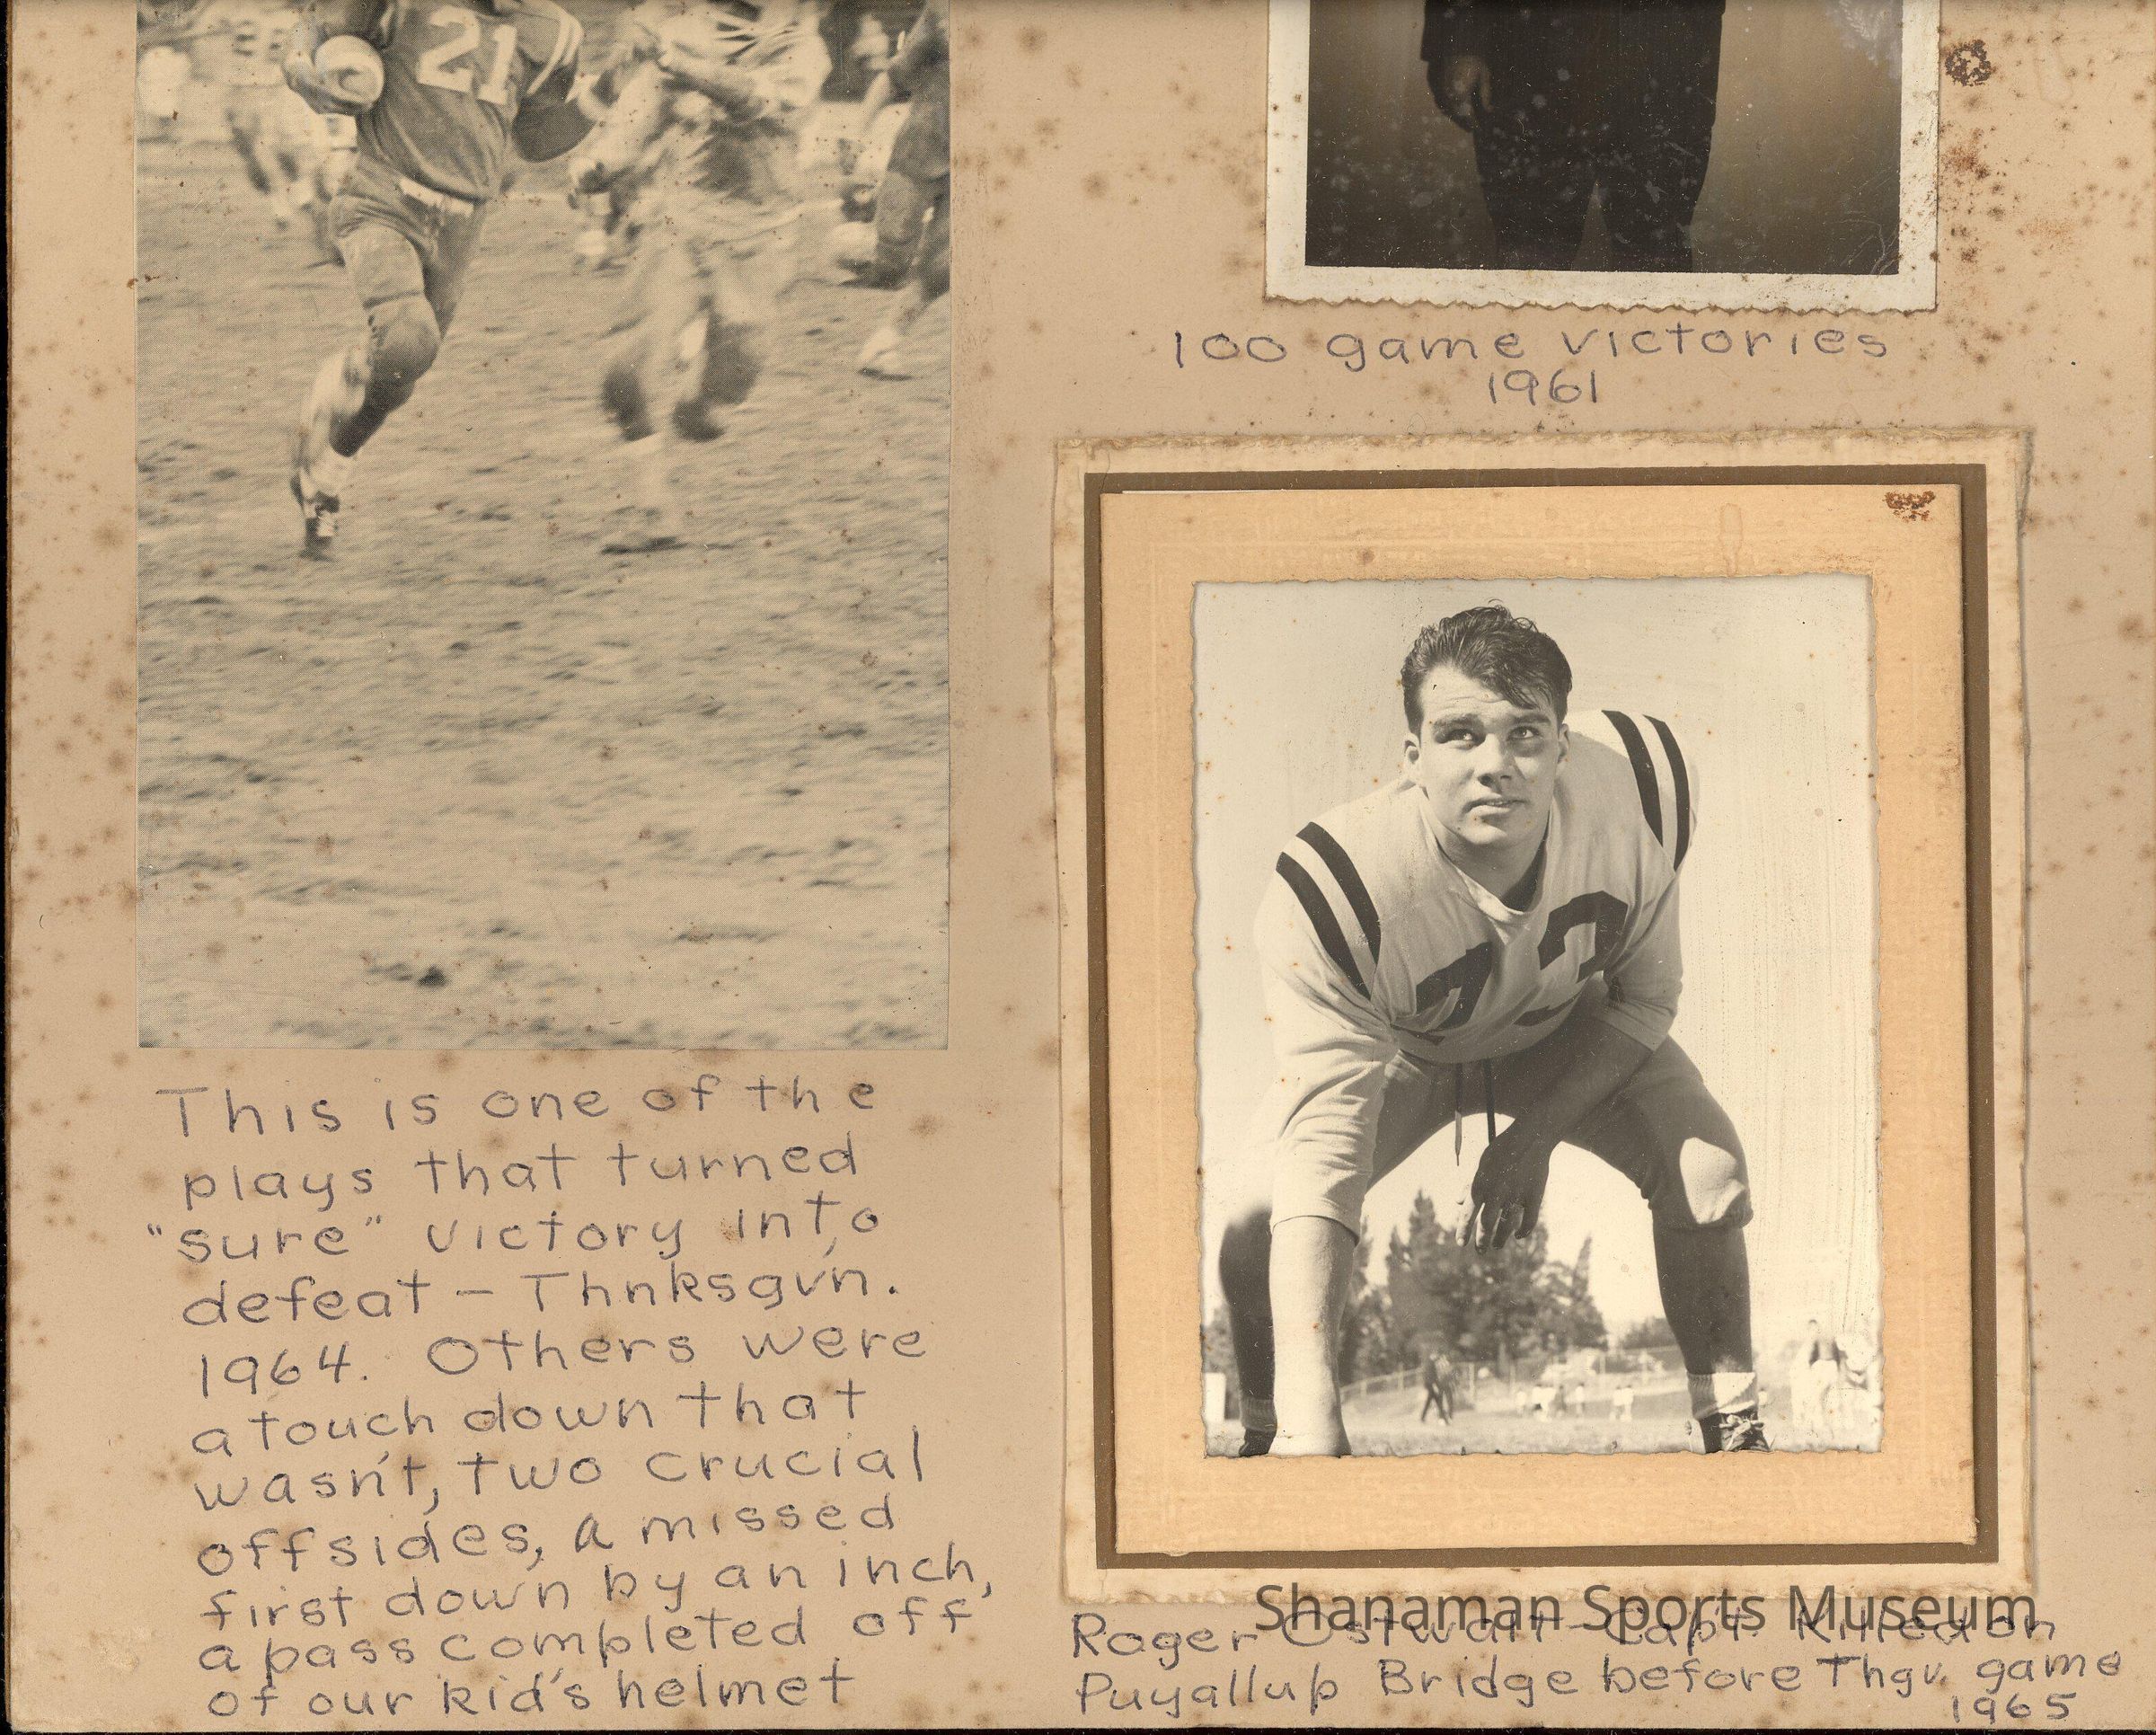 21
This is one of the
plays that turned
"sure" victory into
defeat — Thnksgvn.
1964. Others were
a touch down that
wasn't, two crucial
offsides, a missed
first down by an inch,
a pass completed off
of our kid's helmet
100 game victories
1961
72
Shanaman Sports Museum
Roger Ostwalt - Capt. Killed on
Puyallup Bridge before Thgv. game
1965